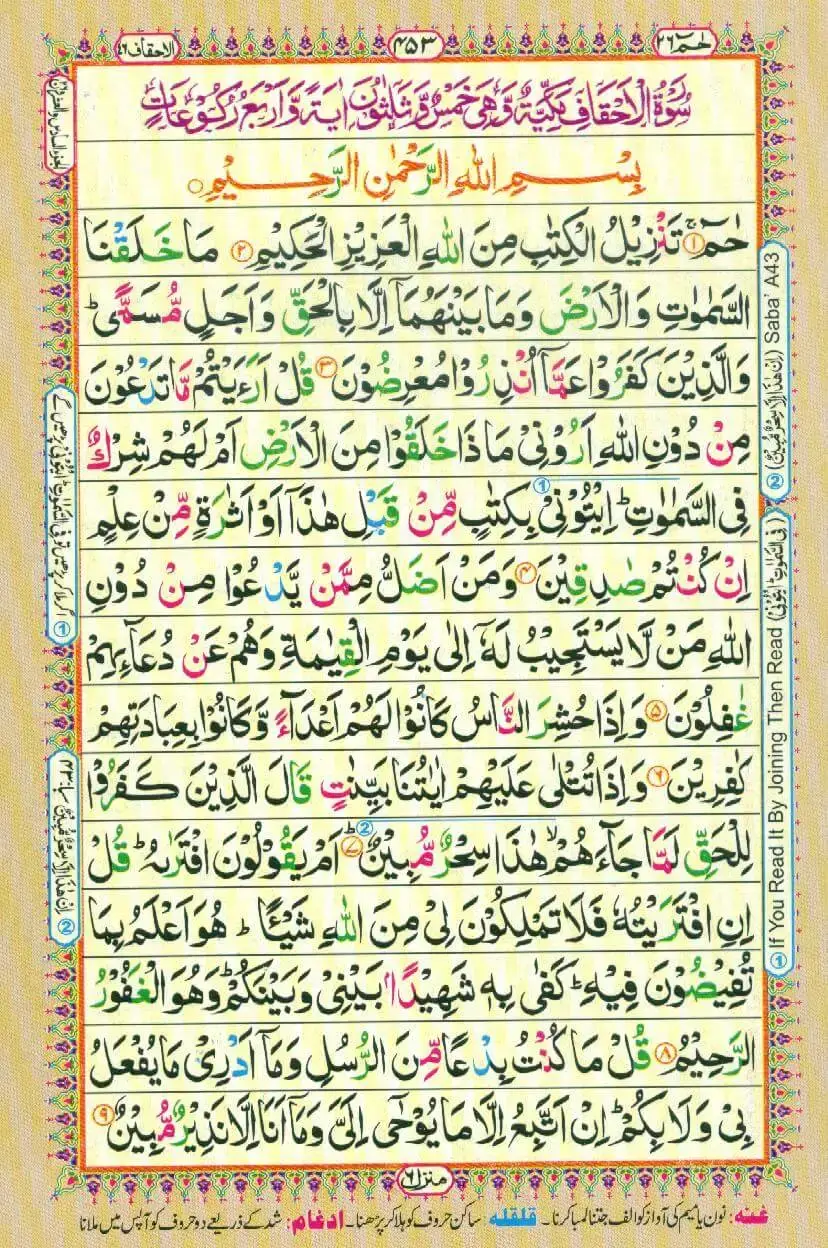 حٰمٓ ٢٦
٤٥٣
الاحقاف ٤٦
سُوْرَةُ الْاَحْقَافِ مَكِّيَّةٌ وَّهِيَ خَمْسٌ وَّثَلٰثُوْنَ اٰيَةً وَّاَرْبَعُ رُكُوْعَاتٍ
بِسْمِ اللّٰهِ الرَّحْمٰنِ الرَّحِيْمِ
حٰمٓ ۚ﴿١﴾ تَنْزِيْلُ الْكِتٰبِ مِنَ اللّٰهِ الْعَزِيْزِ الْحَكِيْمِ ﴿٢﴾ مَا خَلَقْنَا
السَّمٰوٰتِ وَالْاَرْضَ وَمَا بَيْنَهُمَآ اِلَّا بِالْحَقِّ وَاَجَلٍ مُّسَمًّى ؕ
وَالَّذِيْنَ كَفَرُوْا عَمَّآ اُنْذِرُوْا مُعْرِضُوْنَ ﴿٣﴾ قُلْ اَرَءَيْتُمْ مَّا تَدْعُوْنَ
مِنْ دُوْنِ اللّٰهِ اَرُوْنِيْ مَاذَا خَلَقُوْا مِنَ الْاَرْضِ اَمْ لَهُمْ شِرْكٌ
فِى السَّمٰوٰتِ ؕ اِيْتُوْنِيْ بِكِتٰبٍ مِّنْ قَبْلِ هٰذَآ اَوْ اَثٰرَةٍ مِّنْ عِلْمٍ
اِنْ كُنْتُمْ صٰدِقِيْنَ ﴿٤﴾ وَمَنْ اَضَلُّ مِمَّنْ يَّدْعُوْا مِنْ دُوْنِ
اللّٰهِ مَنْ لَّا يَسْتَجِيْبُ لَهٗٓ اِلٰى يَوْمِ الْقِيٰمَةِ وَهُمْ عَنْ دُعَآئِهِمْ
غٰفِلُوْنَ ﴿٥﴾ وَاِذَا حُشِرَ النَّاسُ كَانُوْا لَهُمْ اَعْدَآءً وَّكَانُوْا بِعِبَادَتِهِمْ
كٰفِرِيْنَ ﴿٦﴾ وَاِذَا تُتْلٰى عَلَيْهِمْ اٰيٰتُنَا بَيِّنٰتٍ قَالَ الَّذِيْنَ كَفَرُوْا
لِلْحَقِّ لَمَّا جَآءَهُمْ ۙ هٰذَا سِحْرٌ مُّبِيْنٌ ؕ﴿٧﴾ اَمْ يَقُوْلُوْنَ افْتَرٰىهُ ؕ قُلْ
اِنِ افْتَرَيْتُهٗ فَلَا تَمْلِكُوْنَ لِيْ مِنَ اللّٰهِ شَيْئًا ؕ هُوَ اَعْلَمُ بِمَا
تُفِيْضُوْنَ فِيْهِ ؕ كَفٰى بِهٖ شَهِيْدًۢا بَيْنِيْ وَبَيْنَكُمْ ؕ وَهُوَ الْغَفُوْرُ
الرَّحِيْمُ ﴿٨﴾ قُلْ مَا كُنْتُ بِدْعًا مِّنَ الرُّسُلِ وَمَآ اَدْرِيْ مَا يُفْعَلُ
بِيْ وَلَا بِكُمْ ؕ اِنْ اَتَّبِعُ اِلَّا مَا يُوْحٰٓى اِلَيَّ وَمَآ اَنَا اِلَّا نَذِيْرٌ مُّبِيْنٌ ﴿٩﴾
منزل ٦
غنه: نون یا میم کی آواز کو الف جتنا لمبا کرنا۔ قلقله: ساکن حروف کو ہلا کر پڑھنا۔ ادغام: شد کے ذریعے دو حروف کو آپس میں ملانا
① If You Read It By Joining Then Read (فِى السَّمٰوٰتِ ايْتُوْنِيْ)
② (اِنْ هٰذَآ اِلَّا سِحْرٌ مُّبِيْنٌ) Saba' A43
الجزء السادس والعشرون
② اِنْ هٰذَآ اِلَّا سِحْرٌ مُّبِيْنٌ سبا ٤٣